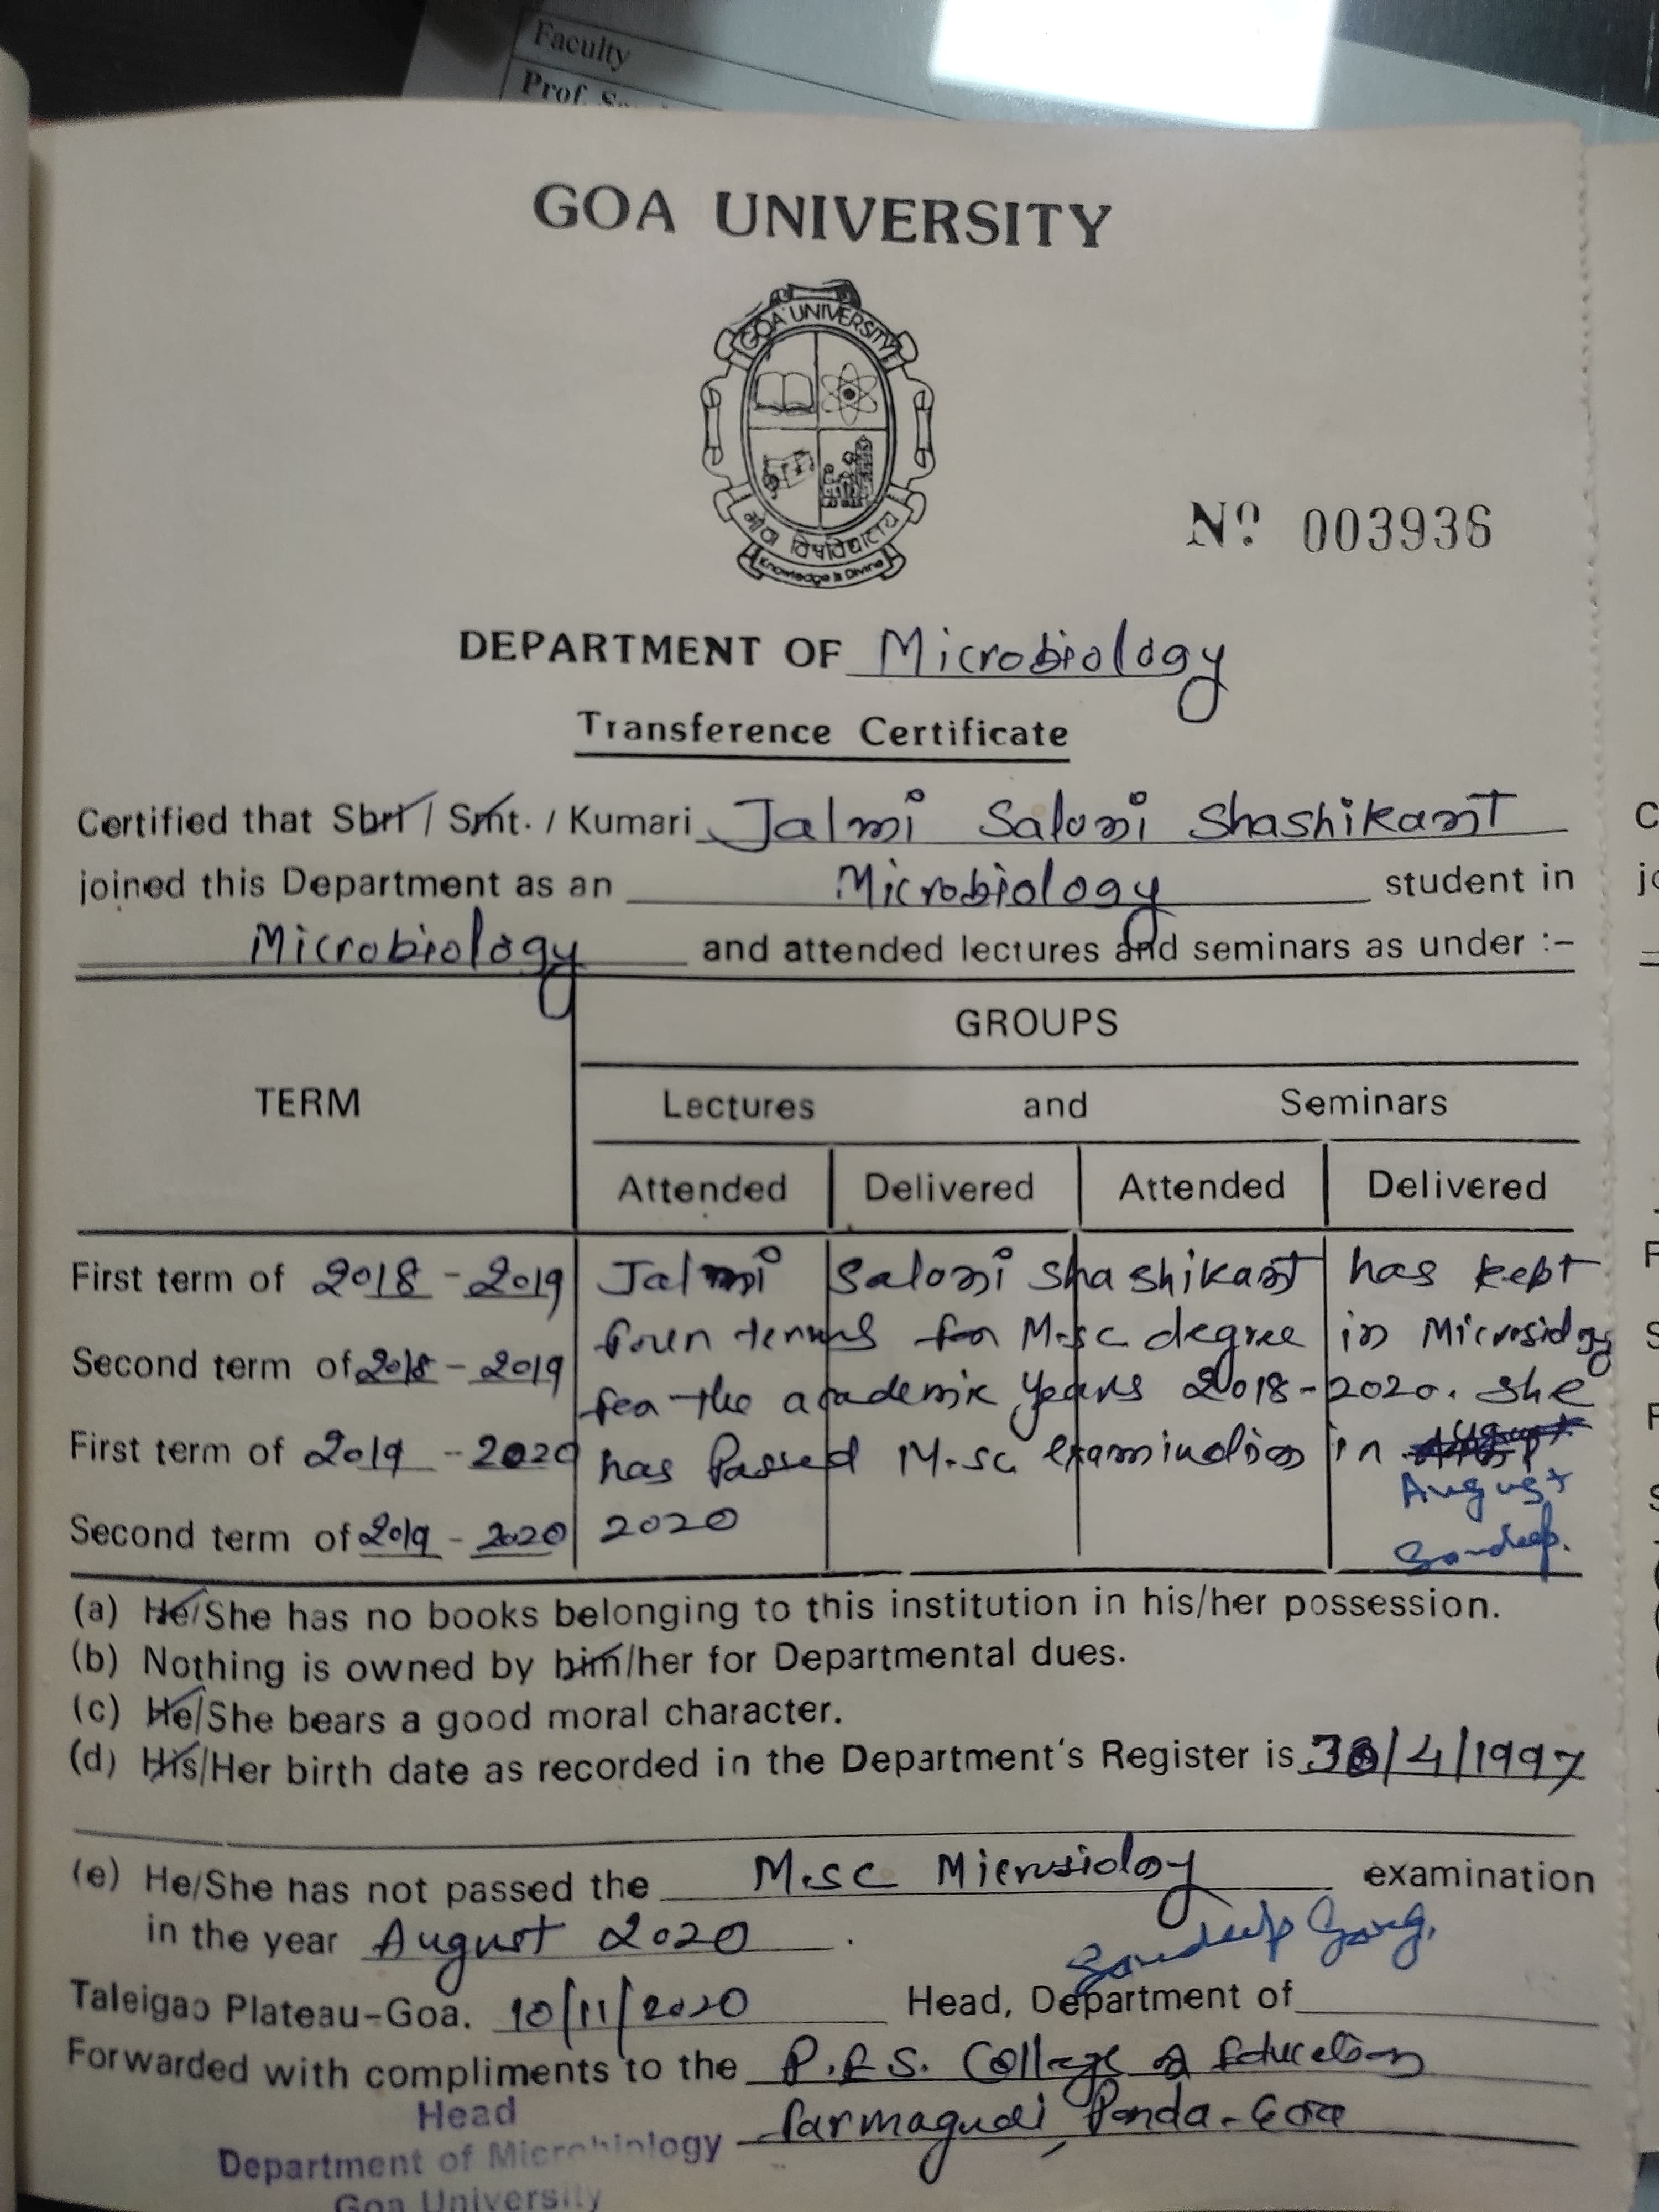 Faculty
Prof.
GOA UNIVERSITY
GOA UNIVERSITY
गोंय विद्यापीठ
Knowledge is Divine
Nº 003936
DEPARTMENT OF Microbiology
Transference Certificate
Certified that Shri / Smt. / Kumari Jalmi Saloni Shashikant
joined this Department as an Microbiology student in
Microbiology and attended lectures and seminars as under :-
GROUPS
TERM Lectures and Seminars
Attended Delivered Attended Delivered
First term of 2018 - 2019 Jalmi Saloni Shashikant has kept
Second term of 2018 - 2019 four terms for M.sc degree in Microbiology
for the academic years 2018-2020. She
First term of 2019 - 2020 has Passed M.sc examination in
August
Second term of 2019 - 2020 2020
Sandeep.
(a) He/She has no books belonging to this institution in his/her possession.
(b) Nothing is owned by him/her for Departmental dues.
(c) He/She bears a good moral character.
(d) His/Her birth date as recorded in the Department's Register is 30/4/1997
(e) He/She has not passed the M.sc Microbiology examination
in the year August 2020.
Sandeep Garg.
Taleigao Plateau-Goa. 10/11/2020 Head, Department of
Forwarded with compliments to the P.E.S. College of Education
Farmagudi, Ponda-Goa
Head
Department of Microbiology
Goa University